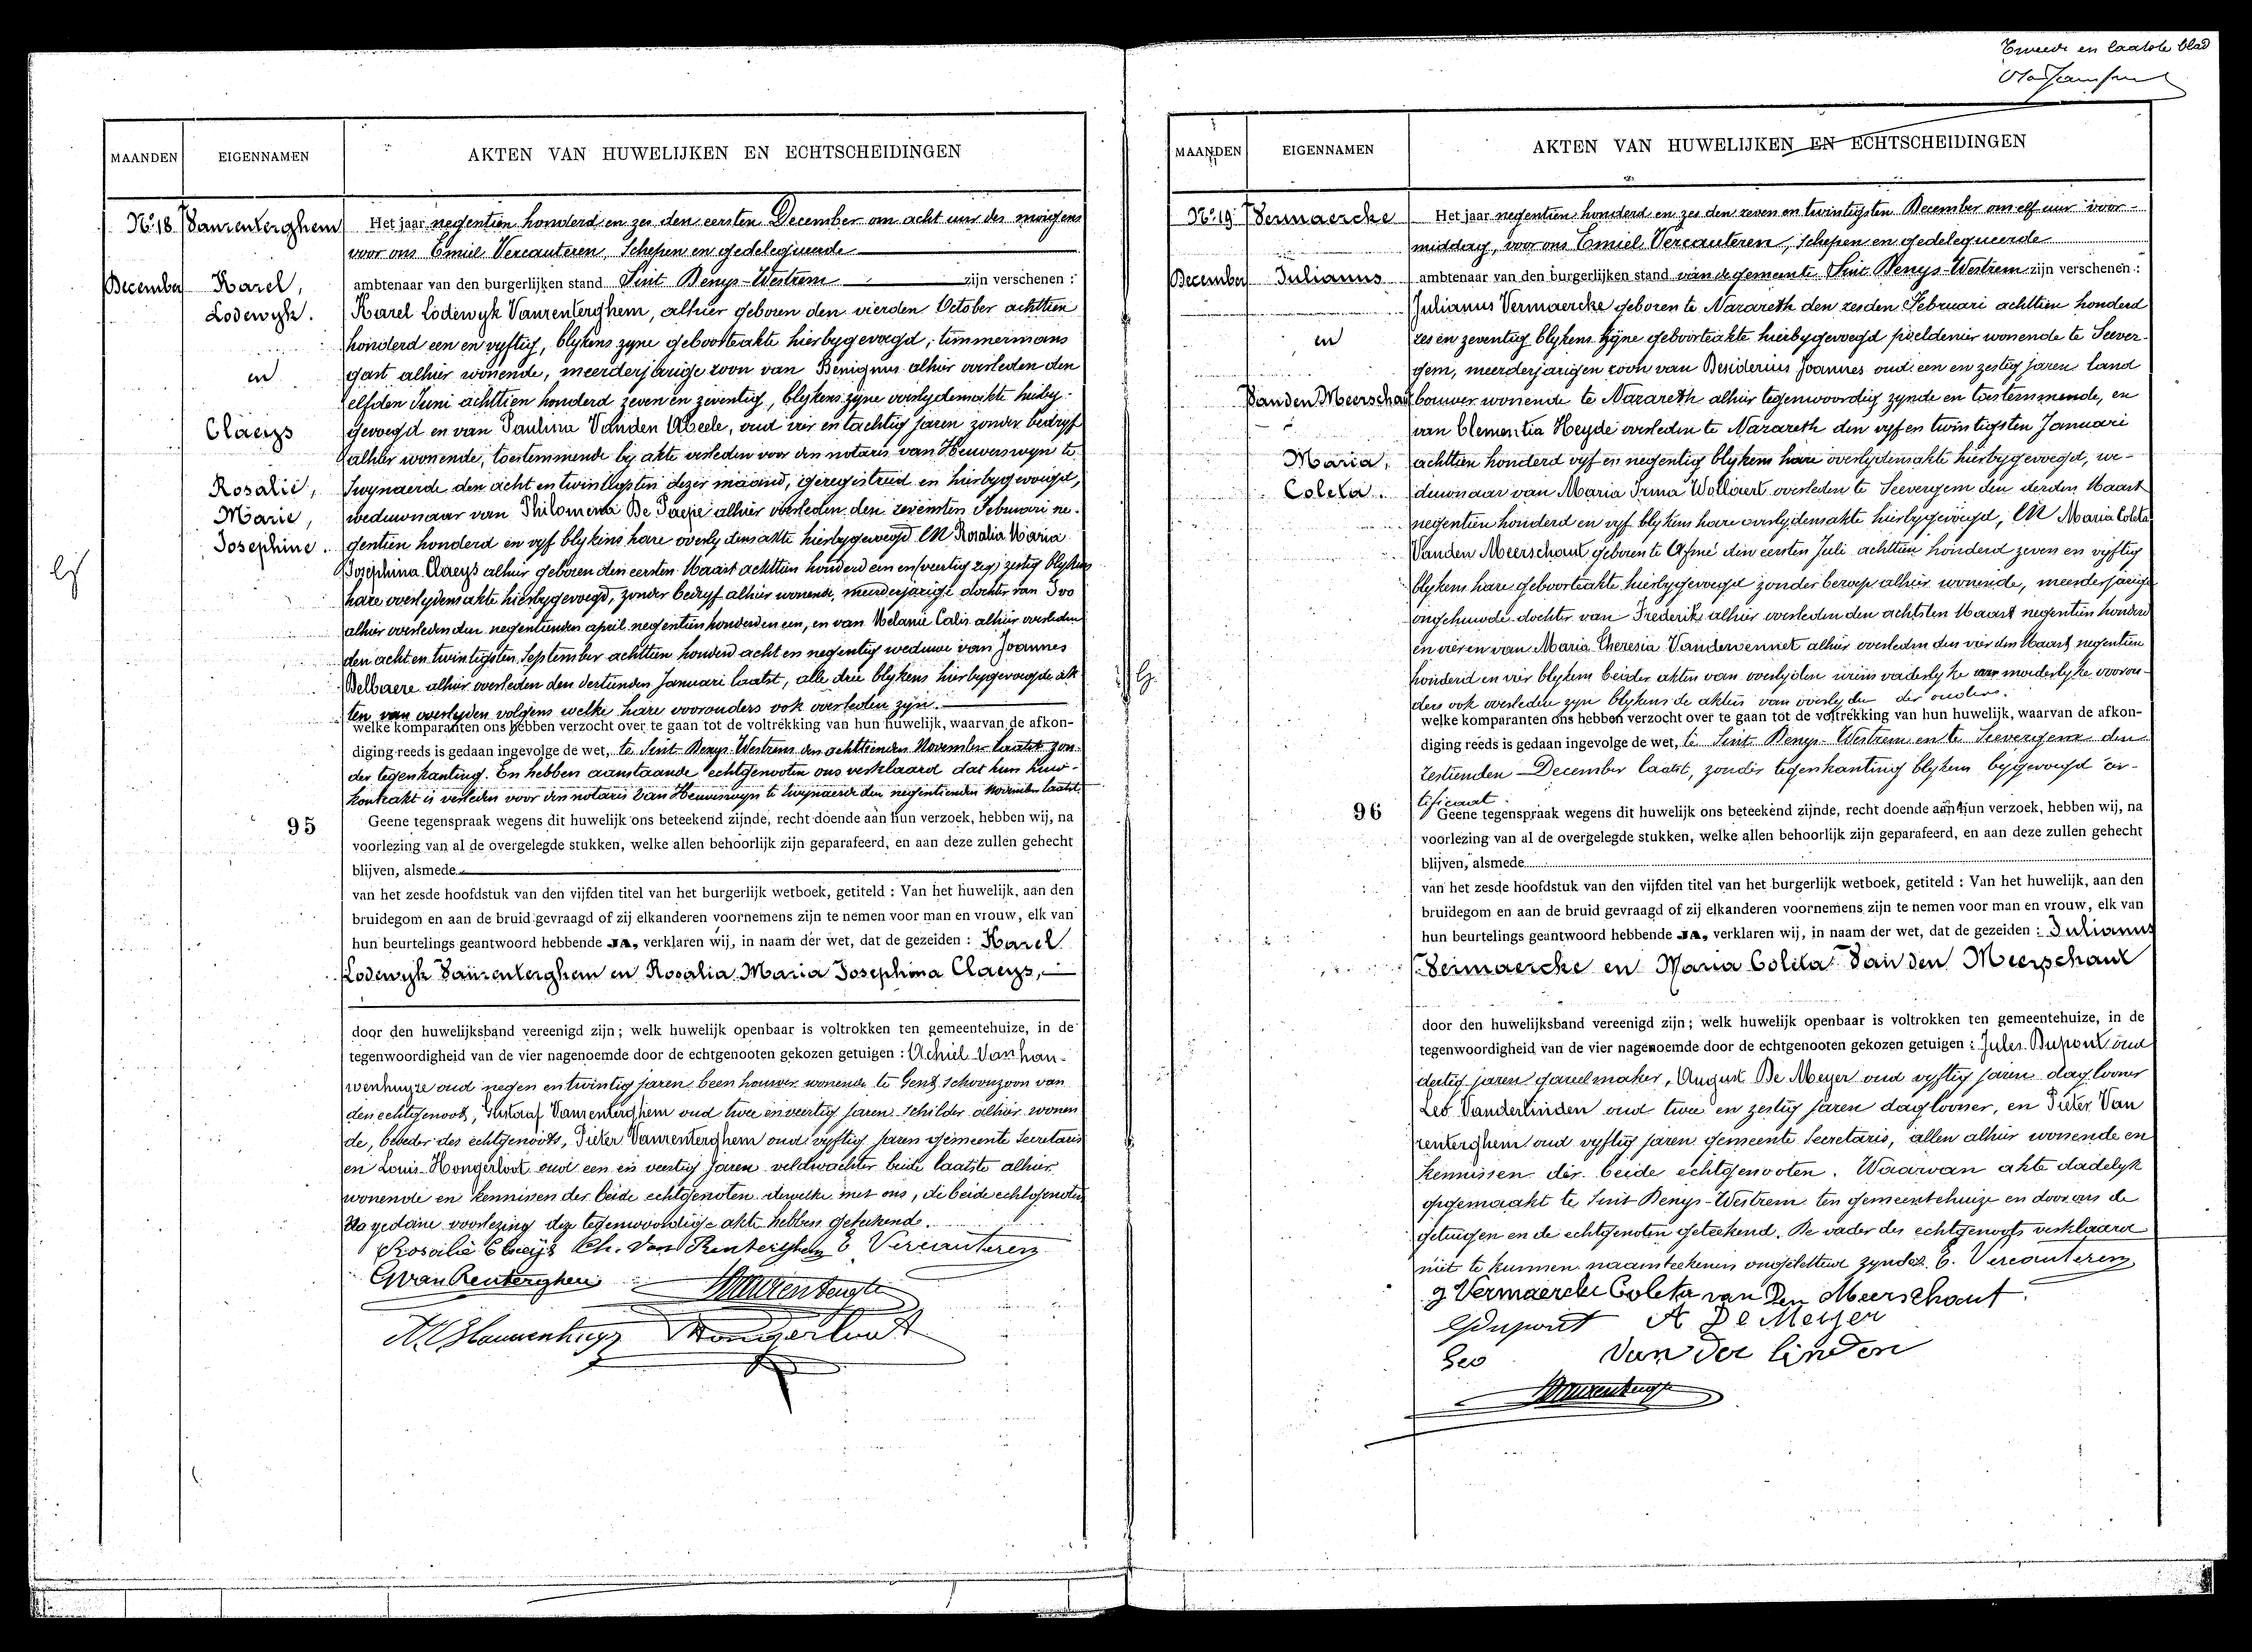 MAANDEN EIGENNAMEN AKTEN VAN HUWELIJKEN EN ECHTSCHEIDINGEN
No 18 Vanrenterghem
December Karel,
Lodewyk.
en
Claeys
Rosalie,
Marie,
Josephine.
Het jaar negentien honderd en zes den eersten December om acht uur des morgens
voor ons Emiel Vercauteren, Schepen en gedelegueerde
ambtenaar van den burgerlijken stand Sint Denys-Westrem zijn verschenen :
Karel Lodewyk Vanrenterghem, alhier geboren den vierden October achttien
honderd een en vyftig, blykens zyne geboorteakte hierbygevoegd, timmermans
gast alhier wonende, meerderjarige zoon van Benignus alhier overleden den
elfden Juni achttien honderd zeven en zeventig, blykens zyne overlydensakte hierby-
gevoegd en van Paulina Vanden Abeele, oud vier en tachtig jaren zonder bedryf
alhier wonende, toestemmende by akte verleden voor den notaris van Heuverswyn te
Swynaerde den acht en twintigsten dezer maand, geregistreerd en hierbygevoegd,
weduwnaar van Philomena De Paepe alhier overleden den zevensten Februari ne-
gentien honderd en vyf blykens hare overlydensakte hierbygevoegd EN Rosalia Maria
Josephina Claeys alhier geboren den eersten Maart achttien honderd een en zestig blykens
hare overlydensakte hierbygevoegd, zonder bedryf alhier wonende, meerderjarige dochter van Ivo
alhier overleden den negentienden april negentien honderd en een, en van Melanie Calis alhier overleden
den acht en twintigsten September achttien honderd acht en negentig weduwe van Joannes
Delbaere alhier overleden den dertienden Januari laatst, alle drie blykens hierbygevoegde ak-
ten van overlyden volgens welke hare voorouders ook overleden zyn.
welke komparanten ons hebben verzocht over te gaan tot de voltrekking van hun huwelijk, waarvan de afkon-
diging reeds is gedaan ingevolge de wet, te Sint Denys-Westrem den achttienden November laatst zon-
der tegenkanting. En hebben aanstaande echtgenooten ons verklaard dat hun huw-
kontrakt is verleden voor den notaris Van Heuverswyn te Swynaerde den negentienden November laatst.
95 Geene tegenspraak wegens dit huwelijk ons beteekend zijnde, recht doende aan hun verzoek, hebben wij, na
voorlezing van al de overgelegde stukken, welke allen behoorlijk zijn geparafeerd, en aan deze zullen gehecht
blijven, alsmede
van het zesde hoofdstuk van den vijfden titel van het burgerlijk wetboek, getiteld : Van het huwelijk, aan den
bruidegom en aan de bruid gevraagd of zij elkanderen voornemens zijn te nemen voor man en vrouw, elk van
hun beurtelings geantwoord hebbende JA, verklaren wij, in naam der wet, dat de gezeiden : Karel
Lodewyk Vanrenterghem en Rosalia Maria Josephina Claeys,
door den huwelijksband vereenigd zijn; welk huwelijk openbaar is voltrokken ten gemeentehuize, in de
tegenwoordigheid van de vier nagenoemde door de echtgenooten gekozen getuigen : Achiel Van hau-
wenhuyze oud negen en twintig jaren beenhouwer wonende te Gent, schoonzoon van
den echtgenoot, Gustaaf Vanrenterghem oud twee en veertig jaren schilder alhier wonen
de, broeder des echtgenoots, Pieter Vanrenterghem oud vyftig jaren gemeente secretaris
en Louis Hongerloot oud een en veertig jaren veldwachter beide laatste alhier
wonende en kennissen der beide echtgenoten dewelke met ons, de beide echtgenoten
Na gedane voorlezing dez tegenwoordige akte hebben geteekend.
Rosalie Claeijs Ch. Van Renterghem E Vercauteren
G van Renterghem
Hongerloot
Tweede en laatste blad
MAANDEN EIGENNAMEN AKTEN VAN HUWELIJKEN EN ECHTSCHEIDINGEN
No 19 Vermaercke
December Julianus
en
Vanden Meerschaut
Maria,
Coleta.
Het jaar negentien honderd en zes den zeven en twintigsten December om elf uur voor-
middag, voor ons Emiel Vercauteren, Schepen en gedelegueerde
ambtenaar van den burgerlijken stand van de gemeente Sint Denys-Westrem zijn verschenen :
Julianus Vermaercke geboren te Nazareth den zesden Februari achttien honderd
zes en zeventig blykens zyne geboorteakte hierbygevoegd peeldenier wonende te Seever-
gem, meerderjarigen zoon van Desiderius Joannes oud een en zestig jaren land
bouwer wonende te Nazareth alhier tegenwoordig zynde en toestemmende, en
van Clementia Heyde overleden te Nazareth den vyf en twintigsten Januari
achttien honderd vyf en negentig blykens hare overlydensakte hierbygevoegd, we-
duwnaar van Maria Irma Wollaert overleden te Seevergem den derden Maart
negentien honderd en vyf blykens hare overlydensakte hierbygevoegd, EN Maria Coleta
Vanden Meerschaut geboren te Afsné den eersten Juli achttien honderd zeven en vyftig
blykens hare geboorteakte hierbygevoegd zonder beroep alhier wonende, meerderjarige
ongehuwde dochter van Frederik alhier overleden den achtsten Maart negentien honderd
en vier en van Maria Theresia Vandervennet alhier overleden den vier den Maart negentien
honderd en vier blykens beider akten van overlyden wiens vaderlyke en moederlyke vooroü-
ders ook overleden zyn blykens de akten van overlyden der ouders.
welke komparanten ons hebben verzocht over te gaan tot de voltrekking van hun huwelijk, waarvan de afkon-
diging reeds is gedaan ingevolge de wet, te Sint Denys-Westrem en te Seevergem den
zestienden December laatst, zonder tegenkanting blykens bygevoegd cer-
tificaat
96 Geene tegenspraak wegens dit huwelijk ons beteekend zijnde, recht doende aan hun verzoek, hebben wij, na
voorlezing van al de overgelegde stukken, welke allen behoorlijk zijn geparafeerd, en aan deze zullen gehecht
blijven, alsmede
van het zesde hoofdstuk van den vijfden titel van het burgerlijk wetboek, getiteld : Van het huwelijk, aan den
bruidegom en aan de bruid gevraagd of zij elkanderen voornemens zijn te nemen voor man en vrouw, elk van
hun beurtelings geantwoord hebbende JA, verklaren wij, in naam der wet, dat de gezeiden : Julianus
Vermaercke en Maria Coleta Van den Meerschaut
door den huwelijksband vereenigd zijn; welk huwelijk openbaar is voltrokken ten gemeentehuize, in de
tegenwoordigheid van de vier nagenoemde door de echtgenooten gekozen getuigen : Jules Dupont oud
dertig jaren gareelmaker, August De Meyer oud vyftig jaren daglooner
Leo Vanderlinden oud twee en zestig jaren daglooner, en Pieter Van
renterghem oud vyftig jaren gemeente secretaris, allen alhier wonende en
kennissen der beide echtgenooten. Waarvan akte dadelyk
opgemaakt te Sint Denys-Westrem ten gemeentehuize en door ons de
getuigen en de echtgenoten geteekend. De vader des echtgenoots verklaard
niet te kunnen naamteekenen ongeletterd zynde. E. Vercauteren
J Vermaercke Coleta van Den Meerschaut.
Dupont A De Meyer
Leo Van der linden